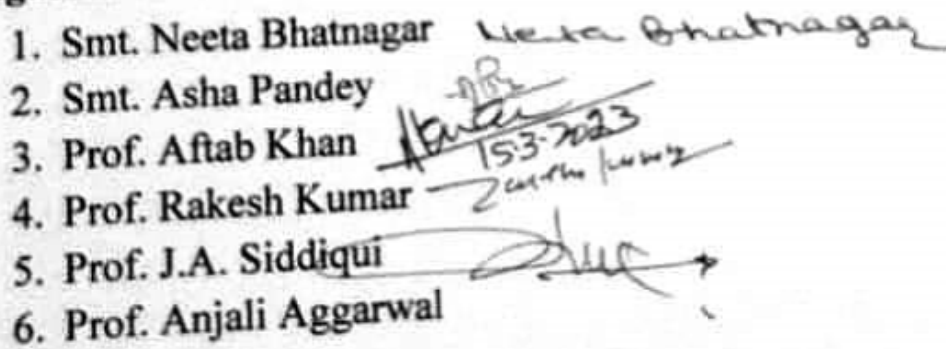 1. Smt. Neeta Bhatnagar Neeta Bhatnagar
2. Smt. Asha Pandey
3. Prof. Aftab Khan
15-3-2023
4. Prof. Rakesh Kumar
5. Prof. J.A. Siddiqui
6. Prof. Anjali Aggarwal